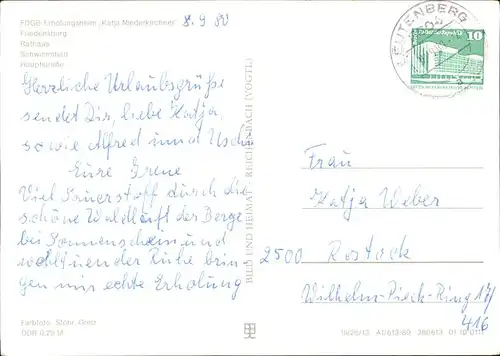 FDGB-Erholungsheim „Katja Niederkirchner"
8.9.80
Friedensburg
Rathaus
Schwimmbad
Hauptstraße
Herzliche Urlaubsgrüße
sendet Dir, liebe Katja,
sowie Alfred und Uschi
Eure Grene
Viel Sauerstoff durch die
schöne Waldluft der Berge
bei Sonnenschein und
wohltuender Ruhe brin
gen mir echte Erholung
Farbfoto: Stöhr, Greiz
DDR 0,20 M
BILD UND HEIMAT REICHENBACH (VOGTL)
LEUTENBERG
10
Frau
Katja Weber
2500 Rostock
Wilhelm-Pieck-Ring 17/
416